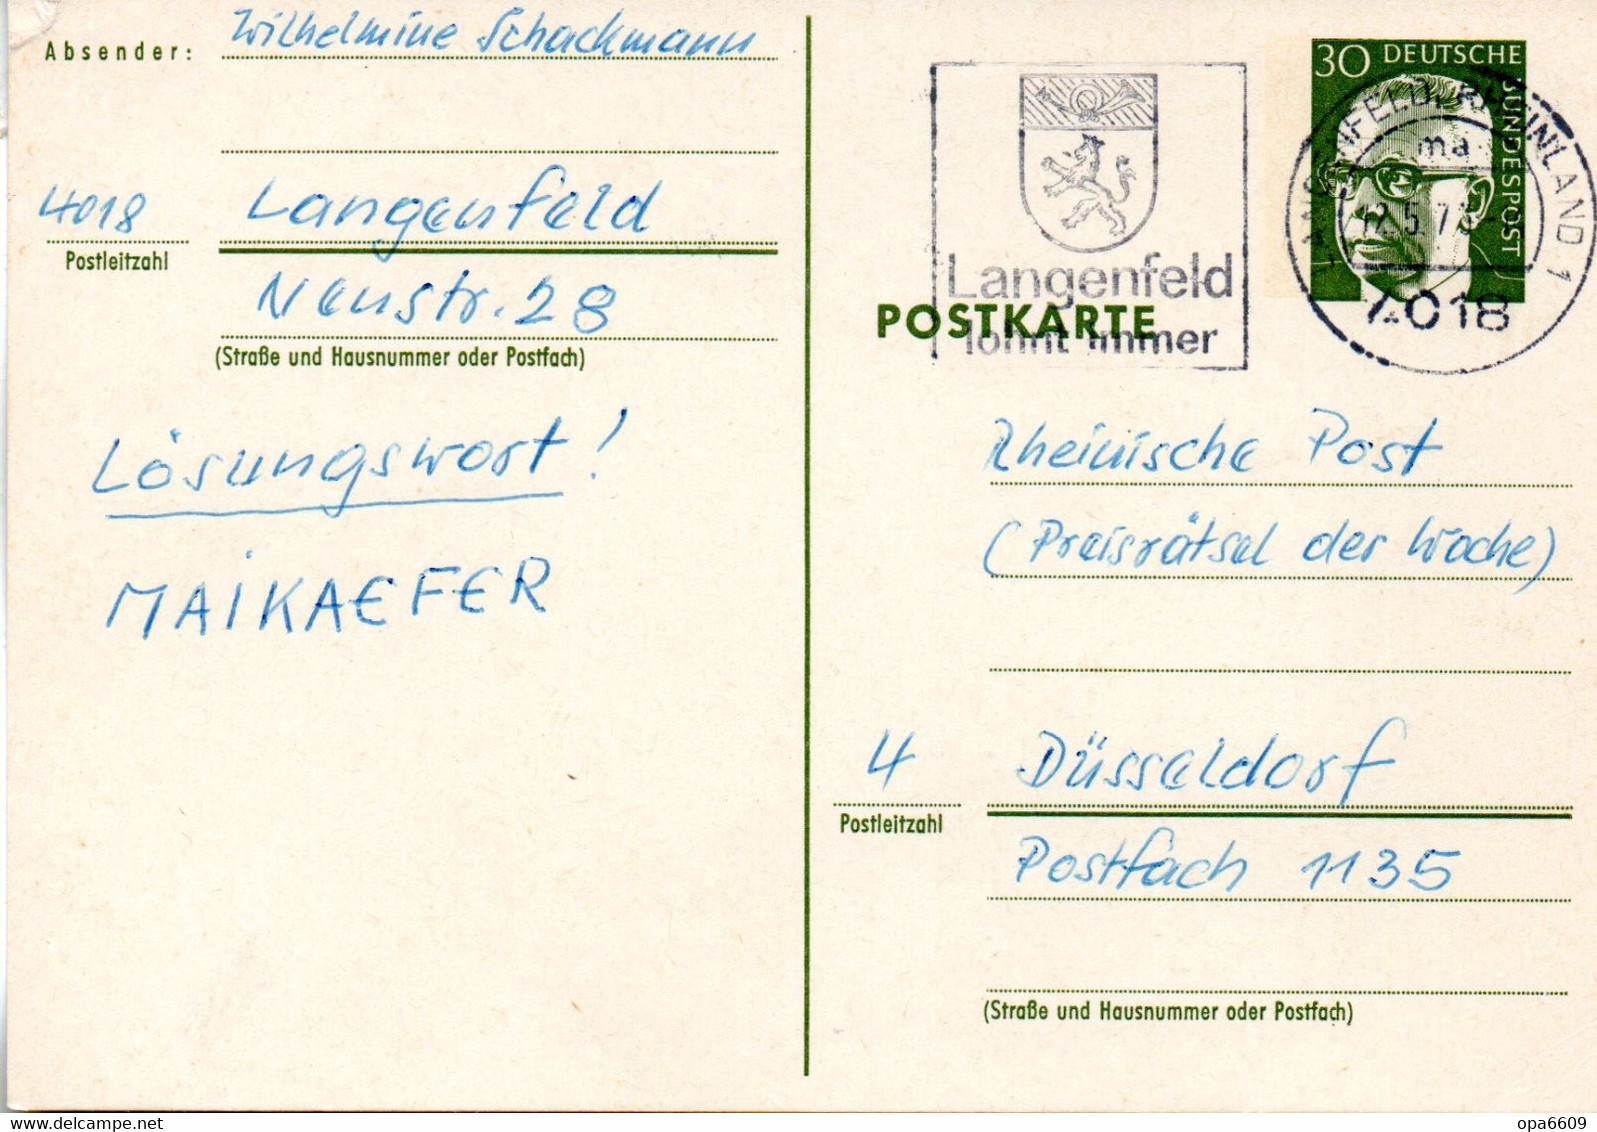 Absender: Wilhelmine Schackmann
4018 Langenfeld
Postleitzahl
Neustr. 28
(Straße und Hausnummer oder Postfach)
Lösungswort!
MAIKAEFER
30 DEUTSCHE
BUNDESPOST
LANGENFELD, RHEINLAND 1
ma
4018
Langenfeld
lohnt immer
POSTKARTE
Rheinische Post
(Preisrätsel der Woche)
4 Düsseldorf
Postleitzahl
Postfach 1135
(Straße und Hausnummer oder Postfach)
opa6609